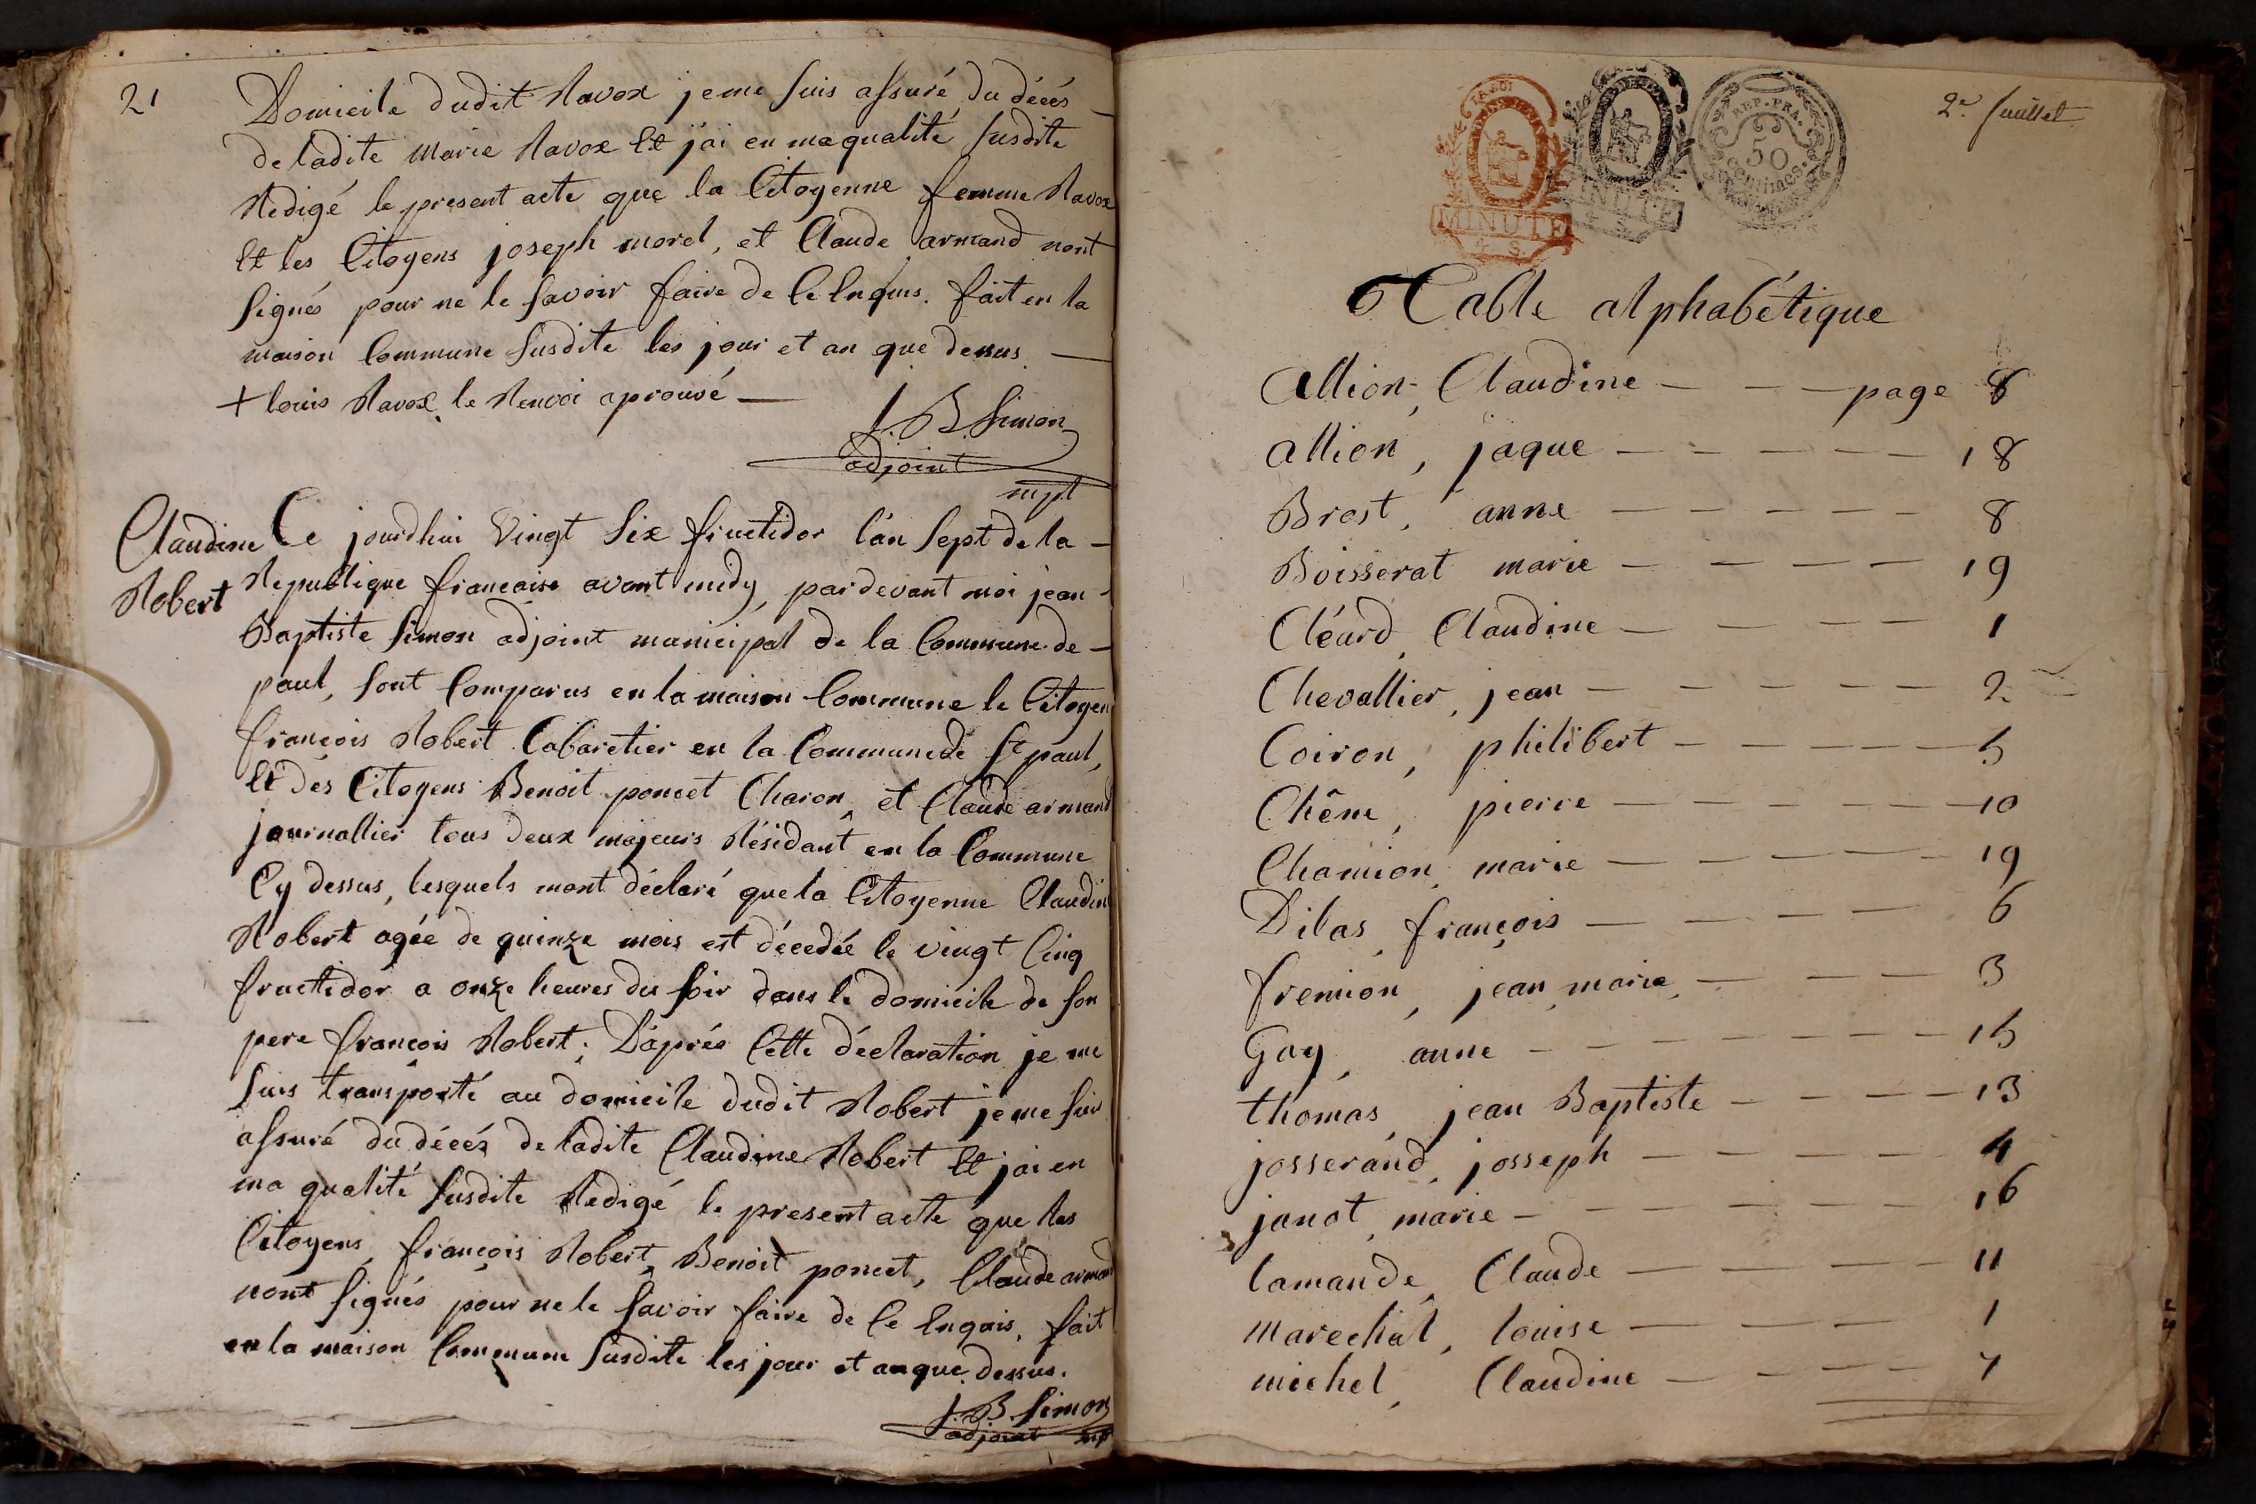 21
Domicile dudit Ravox je me suis assuré du décés
de ladite marie Ravox Et j'ai en ma qualité susdite
Redigé le present acte que la Citoyenne femme Ravox
Et les Citoyens joseph morel, et Claude armand nont
signés pour ne le savoir faire de Ce Enquis. fait en la
maison Commune susdite les jour et an que dessus. —
+ louis Ravox le Renvoi aprouvé —
J. B. Simon
adjoint
mpl
Claudine
Robert
Ce jourdhui Vingt Six fructidor l'an Sept de la —
Republique francaise avant midy, pardevant moi jean -
Baptiste Simon adjoint municipal de la Commune de —
paul, sont Comparus en la maison Commune le Citoyen
françois Robert Cabaretier en la Commune de St paul,
Et des Citoyens Benoit poncet Charon, et Claude armand
journallier tous deux majeurs Résidant en la Commune
Cy dessus, lesquels mont déclaré que la Citoyenne Claudine
Robert agée de quinze mois est décedée le vingt Cinq
fructidor a onze heures du soir dans le domicile de son
pere françois Robert; D'aprés Cette déclaration je me
suis transporté au domicile dudit Robert je me suis
assuré du décés de ladite Claudine Robert Et j'ai en
ma qualité susdite Redigé le present acte que les
Citoyens, françois Robert, Benoit poncet, Claude armand
nont signés pour ne le savoir faire de Ce Enquis, fait
en la maison Commune susdite les jour et an que dessus.
J. B. Simon
adjoint mpl
2e. feuillet
TIMBRE
MINUTE
MINUTE
REP. FRA.
50
Centimes
Table alphabétique
Allion, Claudine — — — page 8
allion, jaque — — — — — 18
Brost, anne — — — — — 8
Boisserat marie — — — — 19
Cléard, Claudine — — — — 1
Chevallier, jean — — — — — 2
Coiron, philibert — — — — — 5
Chêne, pierre — — — — — 10
Chamion, marie — — — — — 19
Dilas, françois — — — — 6
fremion, jean marie — — — — 3
Gay, anne — — — — — — 15
thomas, jean Baptiste — — — — 13
josserand, josseph — — — — 4
janot, marie — — — — — — 16
lamande, Claude — — — — — 11
marechal, louise — — — — 1
michel, Claudine — — — — 7